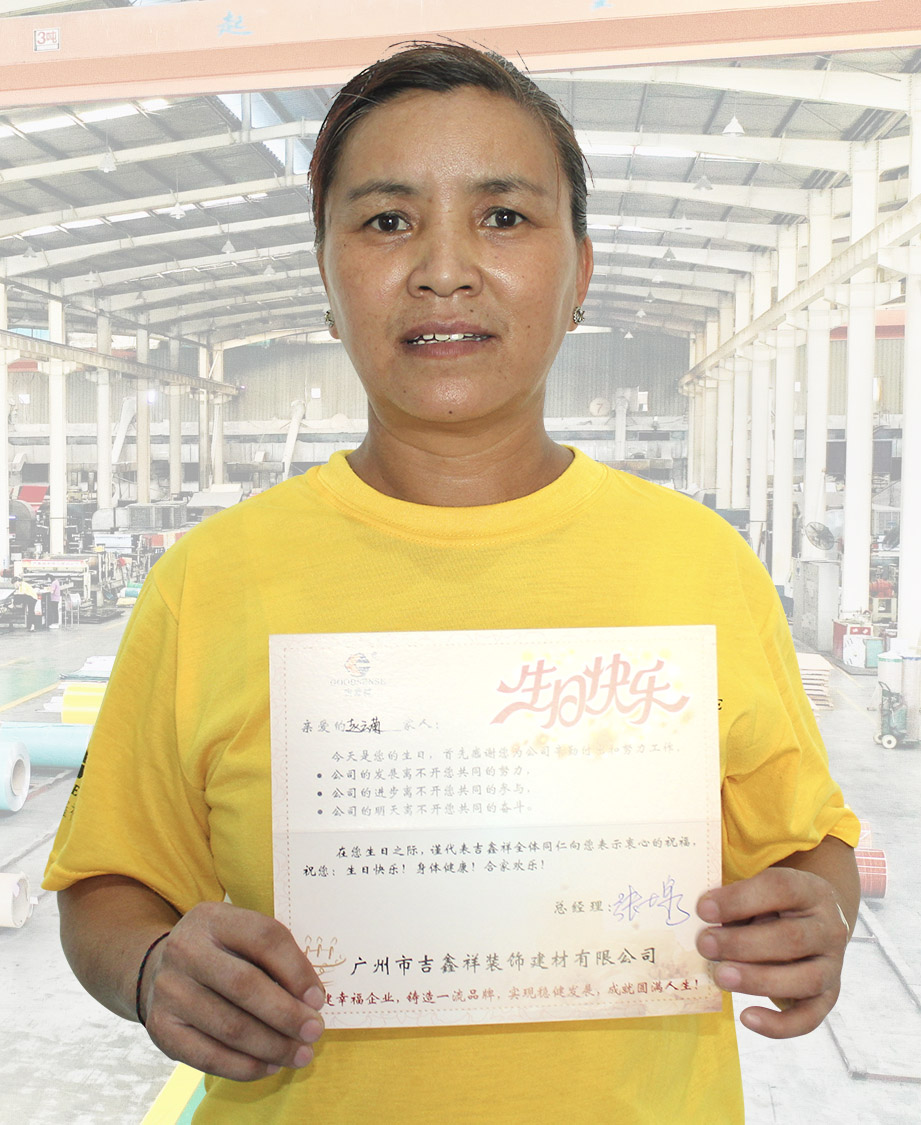 3吨
起
GOODSENSE
吉鑫祥
生日快乐
亲爱的赵云菊 家人:
今天是您的生日,首先感谢您为公司辛勤付出和努力工作。
● 公司的发展离不开您共同的努力,
● 公司的进步离不开您共同的参与,
● 公司的明天离不开您共同的奋斗。
在您生日之际,谨代表吉鑫祥全体同仁向您表示衷心的祝福。
祝您:生日快乐!身体健康!合家欢乐!
总经理:
广州市吉鑫祥装饰建材有限公司
建幸福企业,铸造一流品牌,实现稳健发展,成就圆满人生!